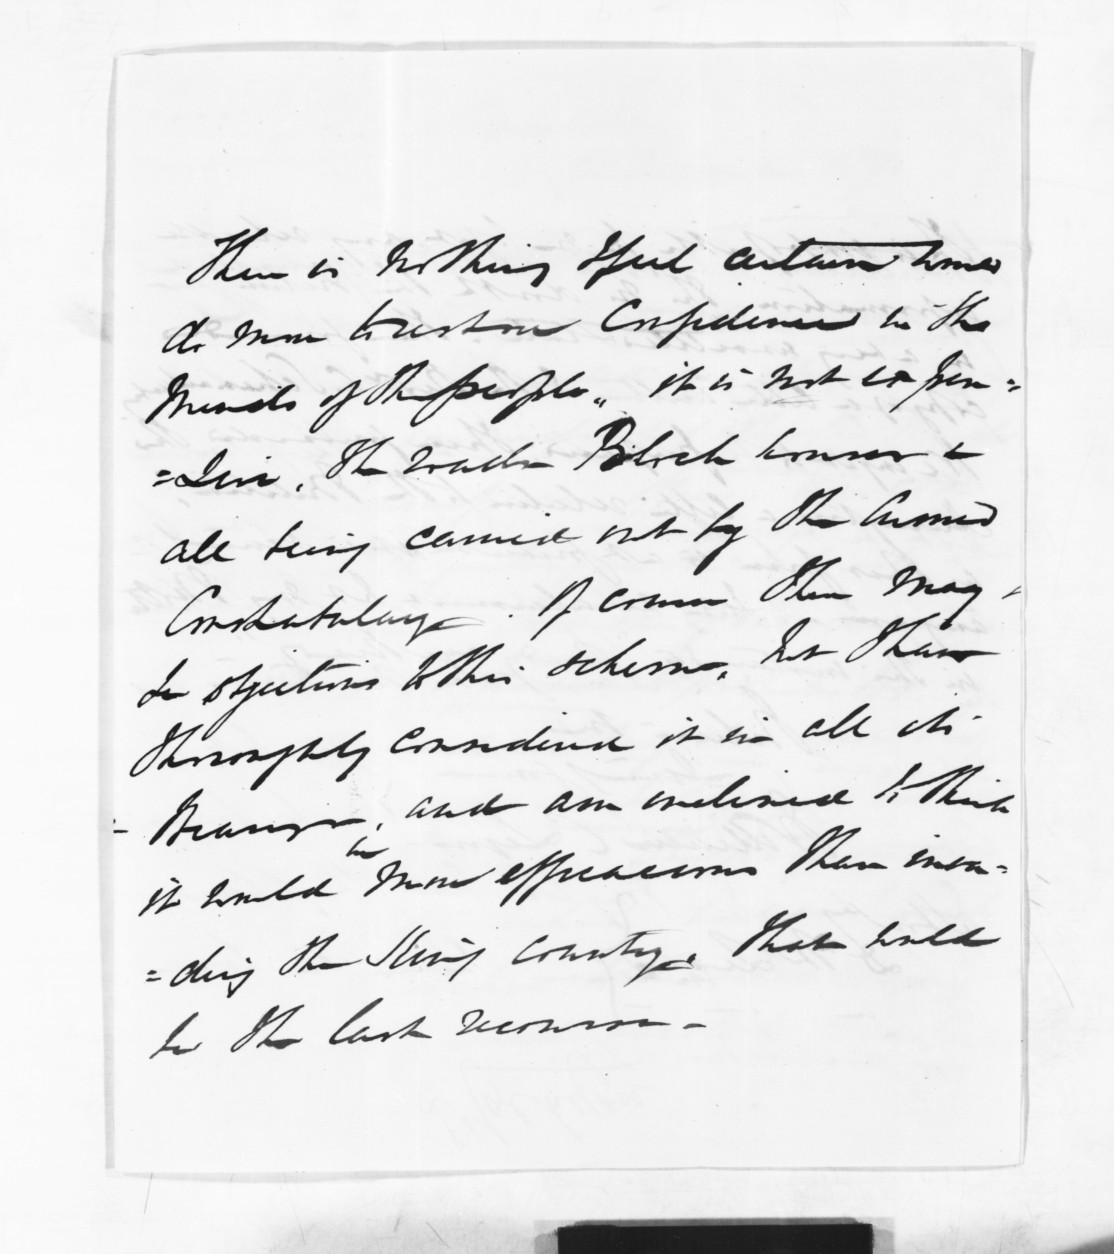 There is nothing I feel certain would
do more to restore Confidence in the
Minds of the people, it is not expen=
=sive, the roads Block houses &
all being carried out by the Armed
Constabulary. Of course there may
be objections to this scheme, but I have
thoroughly considered it in all its
Bearings, and am inclined to think
it would be more efficacious than inva=
=ding the King Country, that would
be the last recourse -